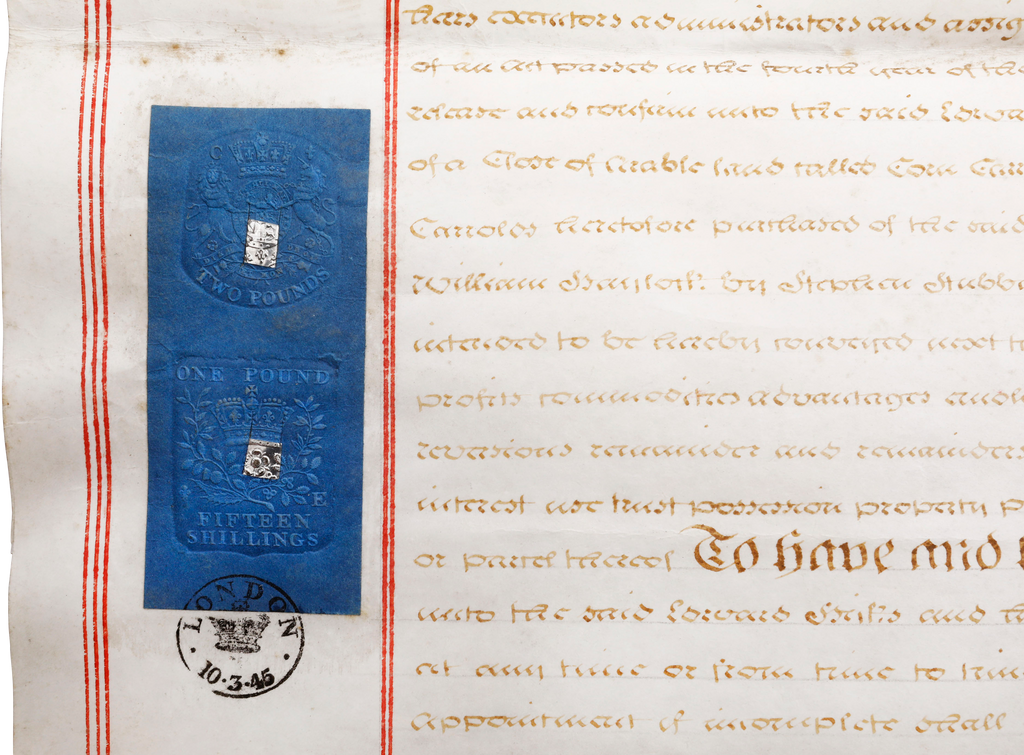 TWO POUNDS
ONE POUND
E
FIFTEEN
SHILLINGS
LONDON
10.3.45
executors administrators and
of an act passed in the fourth year of the
release and confirm unto the said Edward
of a Close of Arable land called Corn
heretofore purchased of the said
William by Stephen
intended to be hereby conveyed next
profits commodities advantages
reversions remainder and remainders
interest use trust possession property
or parcel thereof To have and
unto the said Edward and
at any time or from time to
appointment if incomplete shall